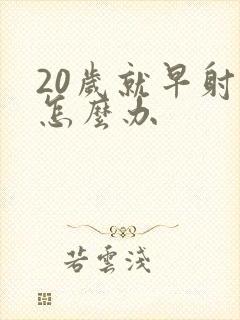 20歲就早射
怎麼办
若雲淺